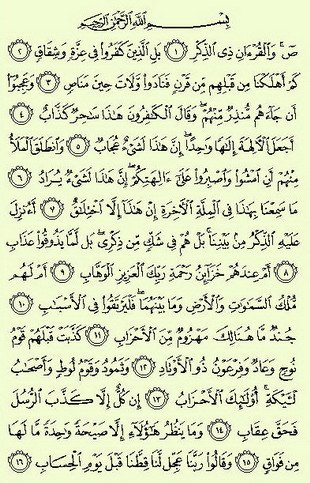 بِسْمِ اللَّهِ الرَّحْمَٰنِ الرَّحِيمِ
صٓ ۚ وَالْقُرْءَانِ ذِى الذِّكْرِ ١ بَلِ الَّذِينَ كَفَرُوا فِى عِزَّةٍ وَشِقَاقٍ ٢
كَمْ أَهْلَكْنَا مِن قَبْلِهِم مِّن قَرْنٍ فَنَادَوا وَّلَاتَ حِينَ مَنَاصٍ ٣ وَعَجِبُوٓا
أَن جَآءَهُم مُّنذِرٌ مِّنْهُمْ ۖ وَقَالَ الْكَٰفِرُونَ هَٰذَا سَٰحِرٌ كَذَّابٌ ٤
أَجَعَلَ الْـَٔالِهَةَ إِلَٰهًا وَٰحِدًا ۖ إِنَّ هَٰذَا لَشَىْءٌ عُجَابٌ ٥ وَانطَلَقَ الْمَلَأُ
مِنْهُمْ أَنِ امْشُوا وَاصْبِرُوا عَلَىٰٓ ءَالِهَتِكُمْ ۖ إِنَّ هَٰذَا لَشَىْءٌ يُرَادُ ٦
مَا سَمِعْنَا بِهَٰذَا فِى الْمِلَّةِ الْـَٔاخِرَةِ إِنْ هَٰذَآ إِلَّا اخْتِلَٰقٌ ٧ أَءُنزِلَ
عَلَيْهِ الذِّكْرُ مِن بَيْنِنَا ۚ بَلْ هُمْ فِى شَكٍّ مِّن ذِكْرِى ۖ بَل لَّمَّا يَذُوقُوا عَذَابِ
٨ أَمْ عِندَهُمْ خَزَآئِنُ رَحْمَةِ رَبِّكَ الْعَزِيزِ الْوَهَّابِ ٩ أَمْ لَهُم
مُّلْكُ السَّمَٰوَٰتِ وَالْأَرْضِ وَمَا بَيْنَهُمَا ۖ فَلْيَرْتَقُوا فِى الْأَسْبَٰبِ ١٠
جُندٌ مَّا هُنَالِكَ مَهْزُومٌ مِّنَ الْأَحْزَابِ ١١ كَذَّبَتْ قَبْلَهُمْ قَوْمُ
نُوحٍ وَعَادٌ وَفِرْعَوْنُ ذُو الْأَوْتَادِ ١٢ وَثَمُودُ وَقَوْمُ لُوطٍ وَأَصْحَٰبُ
لْـَٔيْكَةِ ۚ أُولَٰٓئِكَ الْأَحْزَابُ ١٣ إِن كُلٌّ إِلَّا كَذَّبَ الرُّسُلَ
فَحَقَّ عِقَابِ ١٤ وَمَا يَنظُرُ هَٰٓؤُلَآءِ إِلَّا صَيْحَةً وَٰحِدَةً مَّا لَهَا
مِن فَوَاقٍ ١٥ وَقَالُوا رَبَّنَا عَجِّل لَّنَا قِطَّنَا قَبْلَ يَوْمِ الْحِسَابِ ١٦